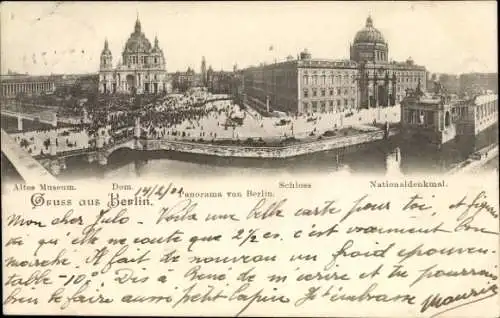 Altes Museum. Dom. Panorama von Berlin. Schloss Nationaldenkmal.
Gruss aus Berlin. 14/2/00
Mon cher Julo. Voilà une belle carte pour toi, et
qui elle ne coute que 2 1/2 cs. c'est vraiment bon
marché. Il fait de nouveau un froid épouven-
table -10°. Dis à René de m'écrire et tu pourrais
bien le faire aussi petit lapin Je t'embrasse Maurice